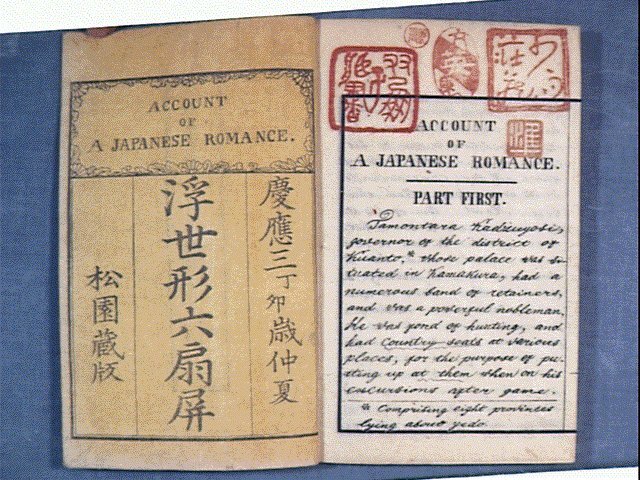 ACCOUNT
OF
A JAPANESE ROMANCE.
慶應三丁卯歳仲夏
浮世形六扇屏
松園藏版
ACCOUNT
OF
A JAPANESE ROMANCE.
PART FIRST.
Tamontara Kadzuyosi,
governor of the district of
Kuanto,* whose palace was si-
tuated in Kamakura, had a
numerous band of retainers,
and was a powerful nobleman.
He was fond of hunting, and
had country seats at various
places, for the purpose of pu-
tting up at them when on his
excursions after game.
* Comprising eight provinces
lying about yedo.